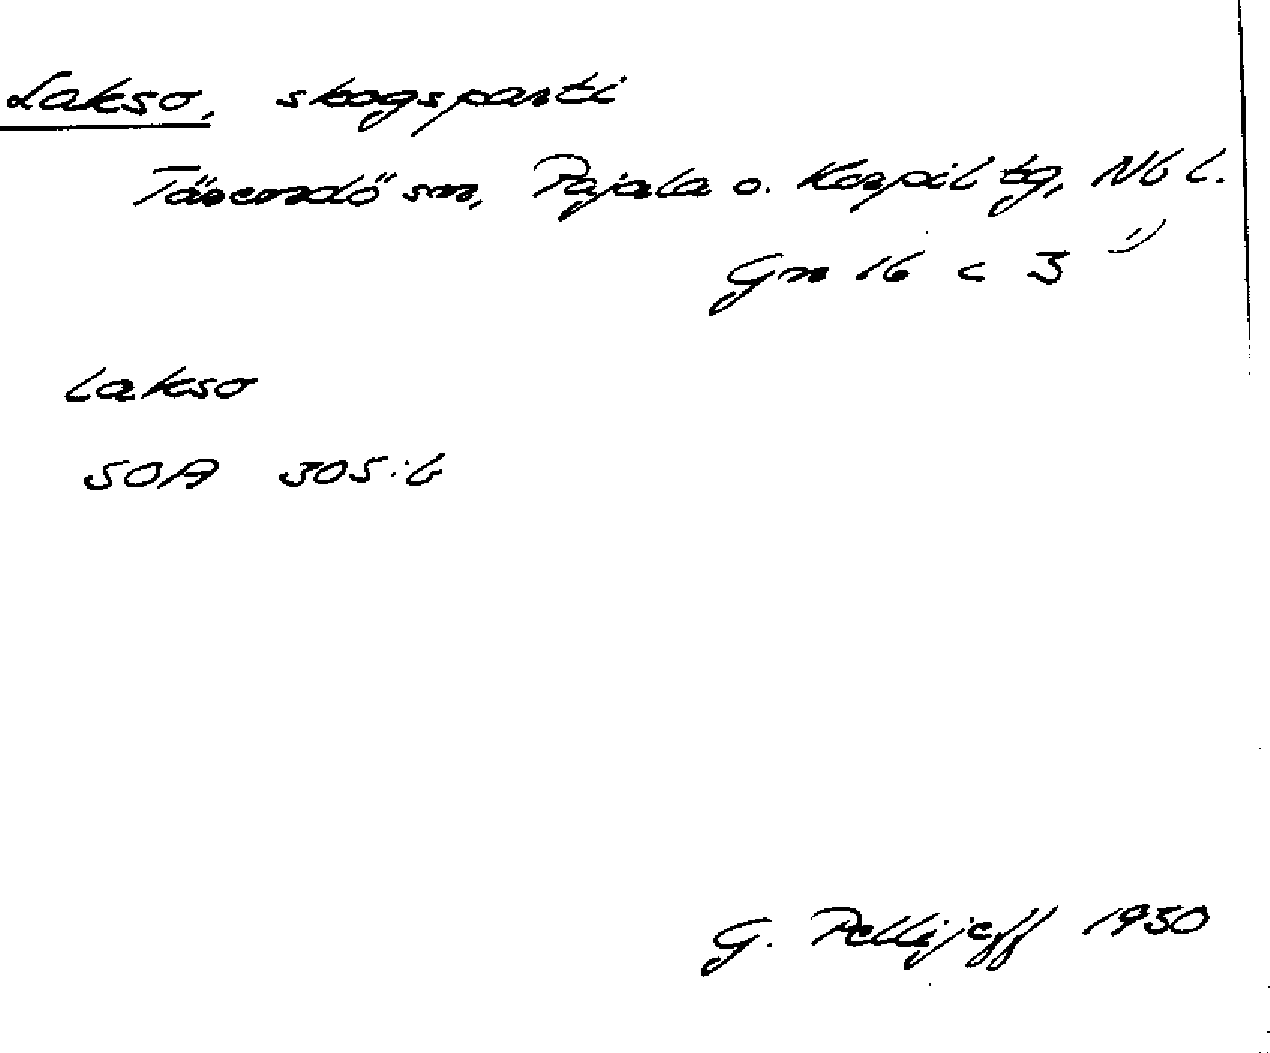 Lakso, skogsparti
Tärendö sn, Pajala o. Korpil tg, Nb l.
Gm 16 c 3 1)
Lakso
SOA 305:6
G. Pellijeff 1950